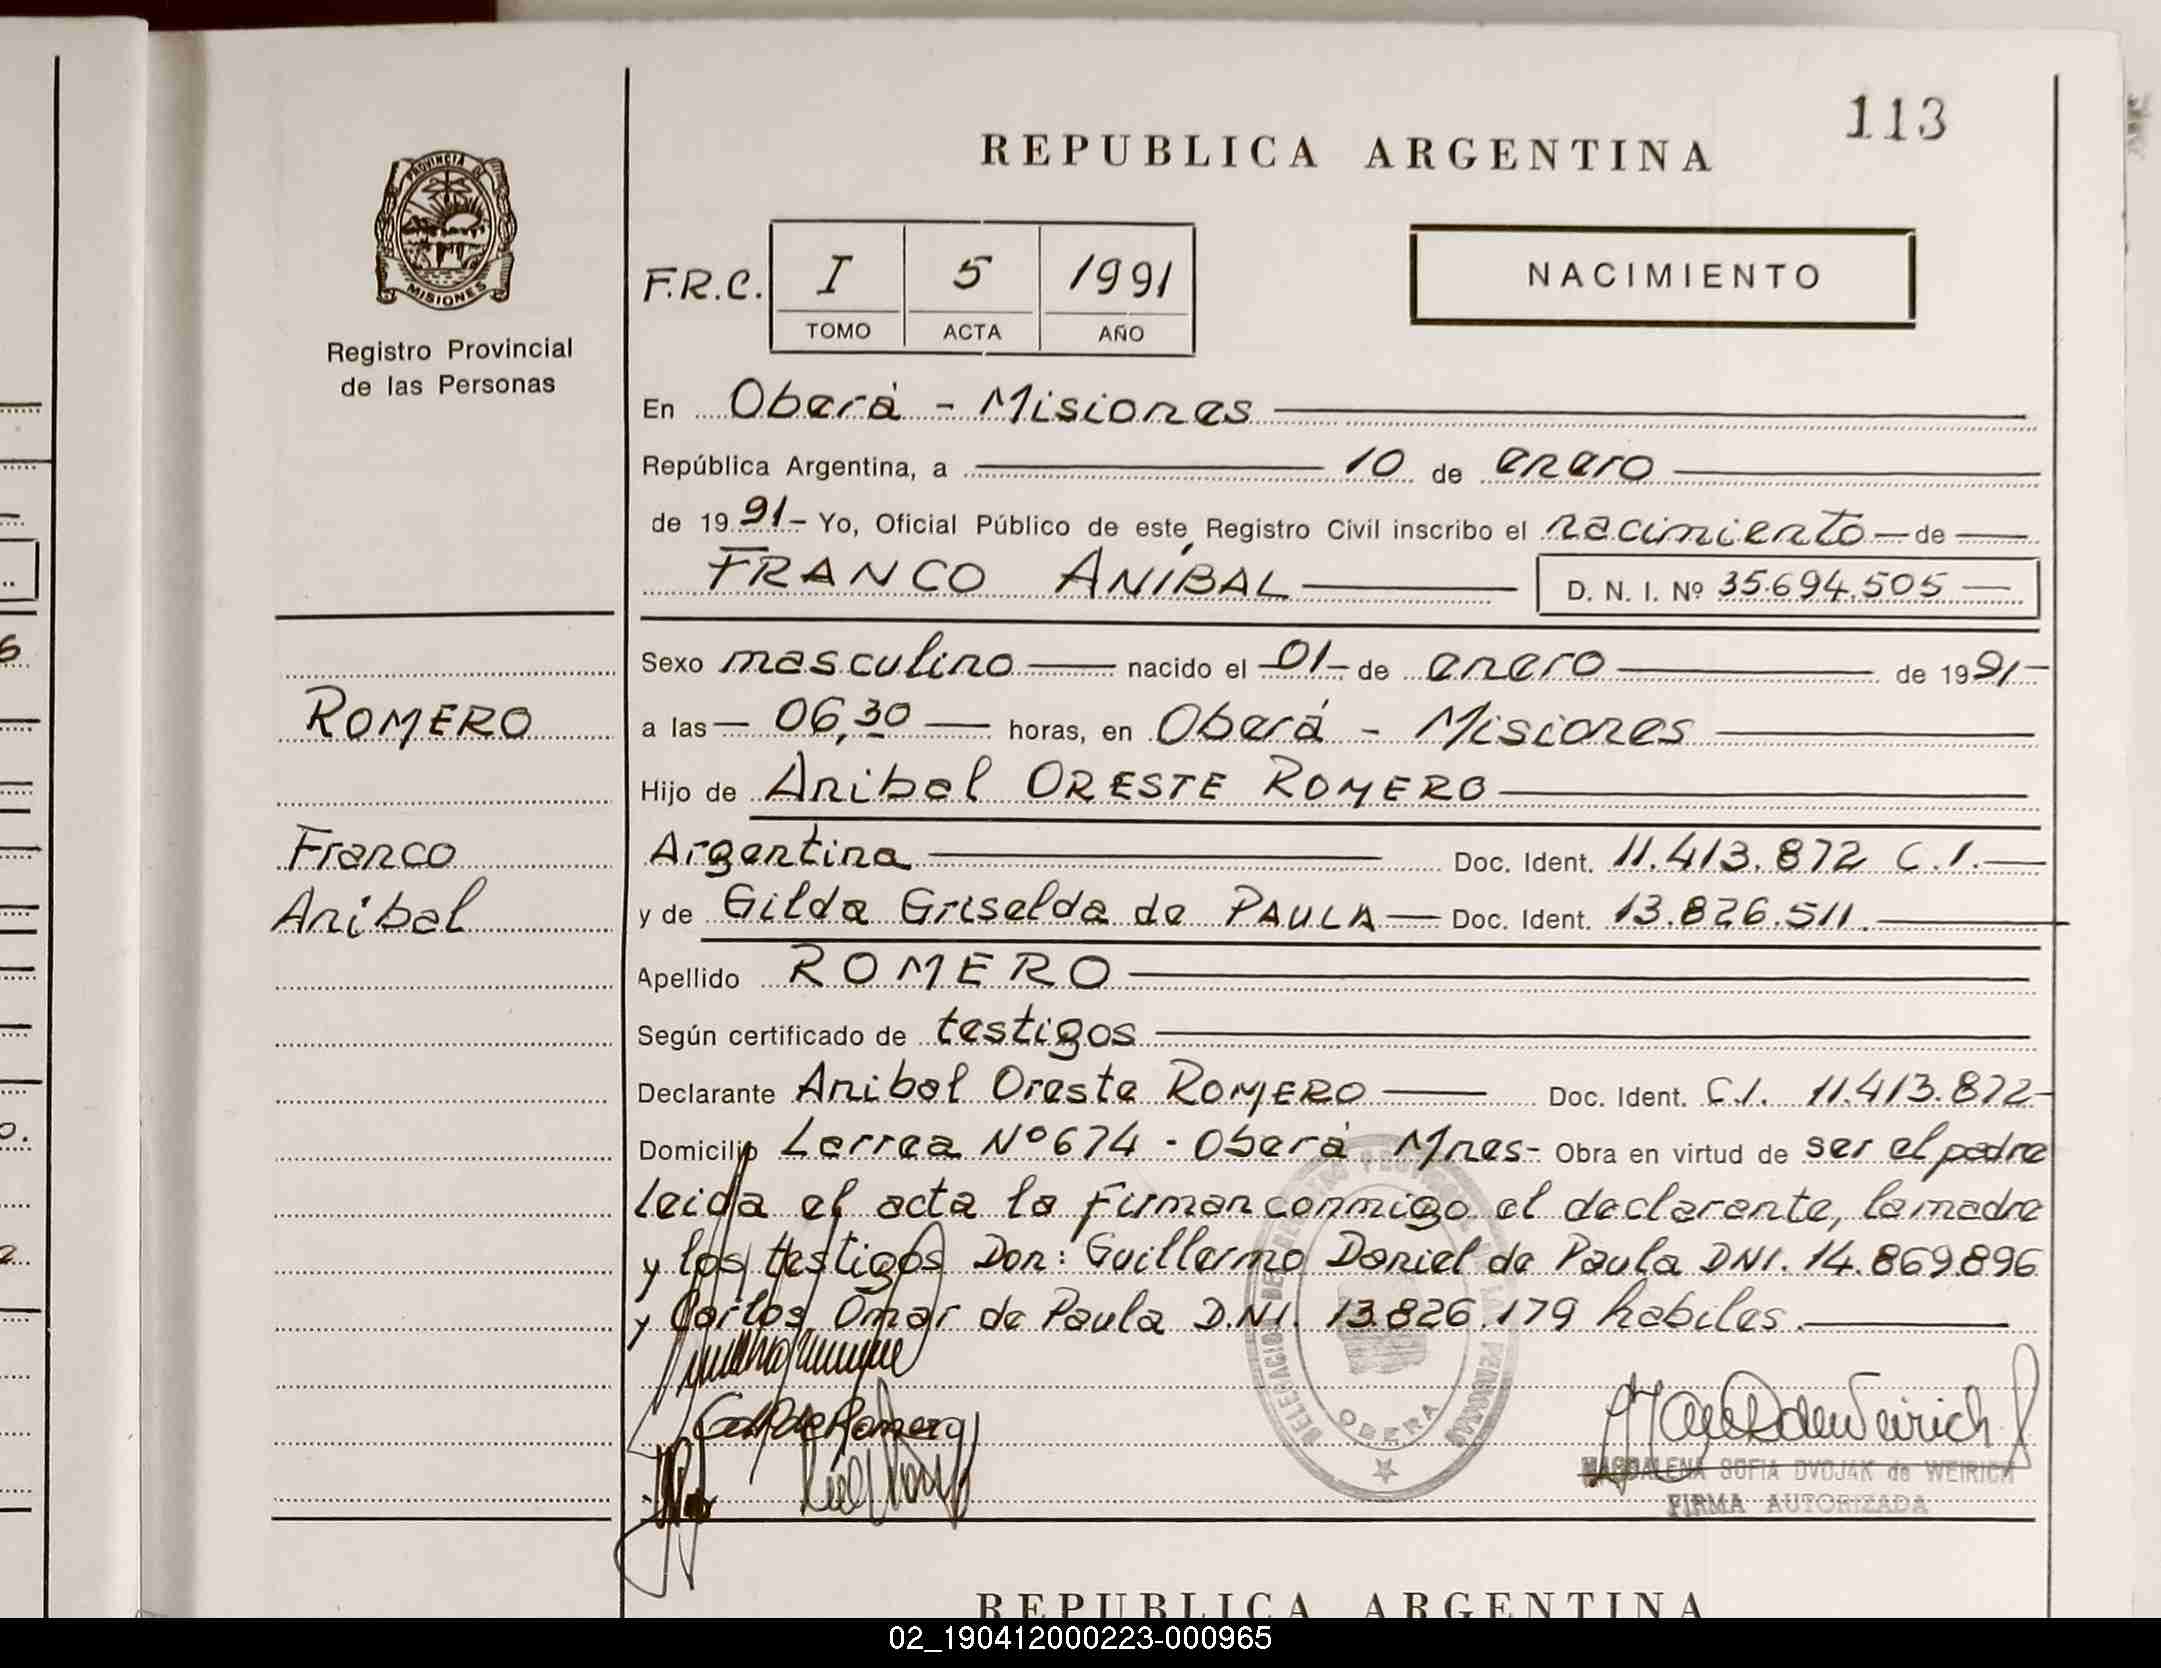 113
REPUBLICA ARGENTINA
PROVINCIA DE
MISIONES
Registro Provincial
de las Personas
F.R.C. I 5 1991
TOMO ACTA AÑO
NACIMIENTO
En Oberá - Misiones
República Argentina, a 10 de enero
de 1991- Yo, Oficial Público de este Registro Civil inscribo el nacimiento de
FRANCO ANÍBAL D. N. I. Nº 35.694.505
Sexo masculino nacido el 01 de enero de 1991-
a las 06,30 horas, en Oberá - Misiones
Hijo de Anibal ORESTE ROMERO
Argentina Doc. Ident. 11.413.872 C.I.
y de Gilda Griselda de PAULA Doc. Ident. 13.826.511.
Apellido ROMERO
Según certificado de testigos
Declarante Anibal Oreste ROMERO Doc. Ident. C.I. 11.413.872-
Domicilio Larrea Nº 674 - Oberá Mnes- Obra en virtud de ser el padre
leida el acta la firman conmigo el declarante, la madre
y los testigos Don: Guillermo Daniel de Paula DNI. 14.869896
y Carlos Omar de Paula D.NI. 13.826.179 habiles.
ROMERO
Franco
Anibal
OBERA
MAGDALENA SOFIA DVOJAK de WEIRICH
FIRMA AUTORIZADA
REPUBLICA ARGENTINA
02_190412000223-000965